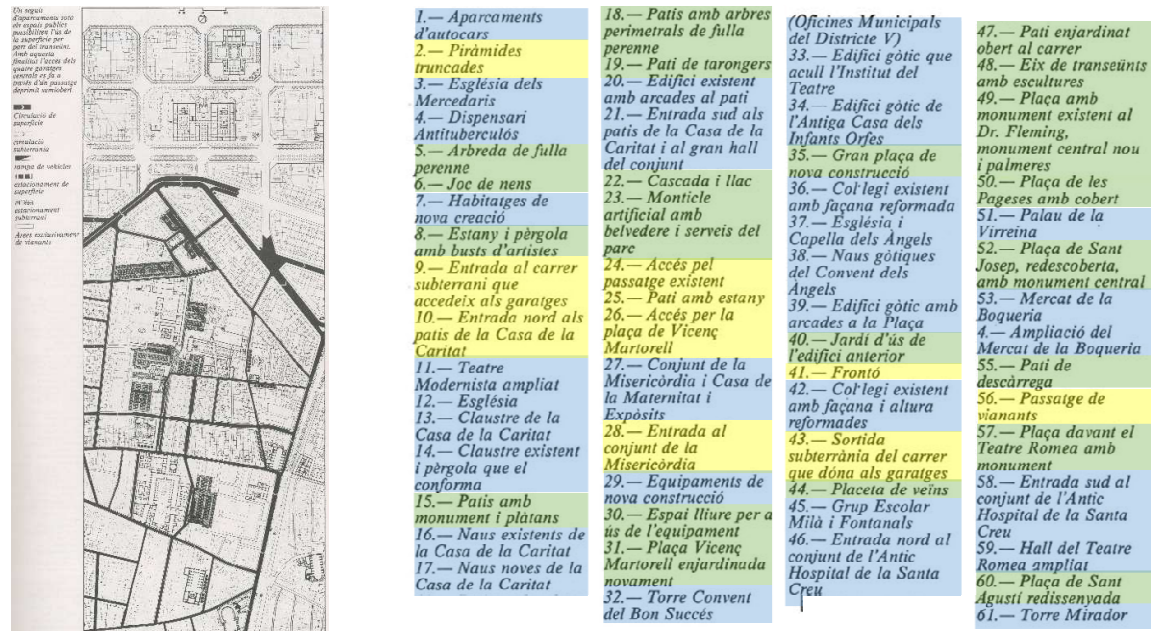 Un seguit
d'aparcaments sota
els espais públics
possibiliten l'ús de
la superfície per
part del transeünt.
Amb aquesta
finalitat l'accés dels
quatre garatges
centrals es fa a
través d'un passatge
deprimit semiobert
Circulació de
superfície
circulació
subterrània
rampa de vehicles
estacionament de
superfície
estacionament
subterrani
Àrees exclusivament
de vianants
1.— Aparcaments
d'autocars
2.— Piràmides
truncades
3.— Església dels
Mercedaris
4.— Dispensari
Antituberculós
5.— Arbreda de fulla
perenne
6.— Joc de nens
7.— Habitatges de
nova creació
8.— Estany i pèrgola
amb busts d'artistes
9.— Entrada al carrer
subterrani que
accedeix als garatges
10.— Entrada nord als
patis de la Casa de la
Caritat
11.— Teatre
Modernista ampliat
12.— Església
13.— Claustre de la
Casa de la Caritat
14.— Claustre existent
i pèrgola que el
conforma
15.— Patis amb
monument i plàtans
16.— Naus existents de
la Casa de la Caritat
17.— Naus noves de la
Casa de la Caritat
18.— Patis amb arbres
perimetrals de fulla
perenne
19.— Pati de tarongers
20.— Edifici existent
amb arcades al pati
21.— Entrada sud als
patis de la Casa de la
Caritat i al gran hall
del conjunt
22.— Cascada i llac
23.— Monticle
artificial amb
belvedere i serveis del
parc
24.— Accés pel
passatge existent
25.— Pati amb estany
26.— Accés per la
plaça de Vicenç
Martorell
27.— Conjunt de la
Misericòrdia i Casa de
la Maternitat i
Expòsits
28.— Entrada al
conjunt de la
Misericòrdia
29.— Equipaments de
nova construcció
30.— Espai lliure per a
ús de l'equipament
31.— Plaça Vicenç
Martorell enjardinada
novament
32.— Torre Convent
del Bon Succés
(Oficines Municipals
del Districte V)
33.— Edifici gòtic que
acull l'Institut del
Teatre
34.— Edifici gòtic de
l'Antiga Casa dels
Infants Orfes
35.— Gran plaça de
nova construcció
36.— Col·legi existent
amb façana reformada
37.— Església i
Capella dels Àngels
38.— Naus gòtiques
del Convent dels
Àngels
39.— Edifici gòtic amb
arcades a la Plaça
40.— Jardí d'ús de
l'edifici anterior
41.— Frontó
42.— Col·legi existent
amb façana i altura
reformades
43.— Sortida
subterrània del carrer
que dóna als garatges
44.— Placeta de veïns
45.— Grup Escolar
Milà i Fontanals
46.— Entrada nord al
conjunt de l'Antic
Hospital de la Santa
Creu
47.— Pati enjardinat
obert al carrer
48.— Eix de transeünts
amb escultures
49.— Plaça amb
monument existent al
Dr. Fleming,
monument central nou
i palmeres
50.— Plaça de les
Pageses amb cobert
51.— Palau de la
Virreina
52.— Plaça de Sant
Josep, redescoberta,
amb monument central
53.— Mercat de la
Boqueria
4.— Ampliació del
Mercat de la Boqueria
55.— Pati de
descàrrega
56.— Passatge de
vianants
57.— Plaça davant el
Teatre Romea amb
monument
58.— Entrada sud al
conjunt de l'Antic
Hospital de la Santa
Creu
59.— Hall del Teatre
Romea ampliat
60.— Plaça de Sant
Agustí redissenyada
61.— Torre Mirador